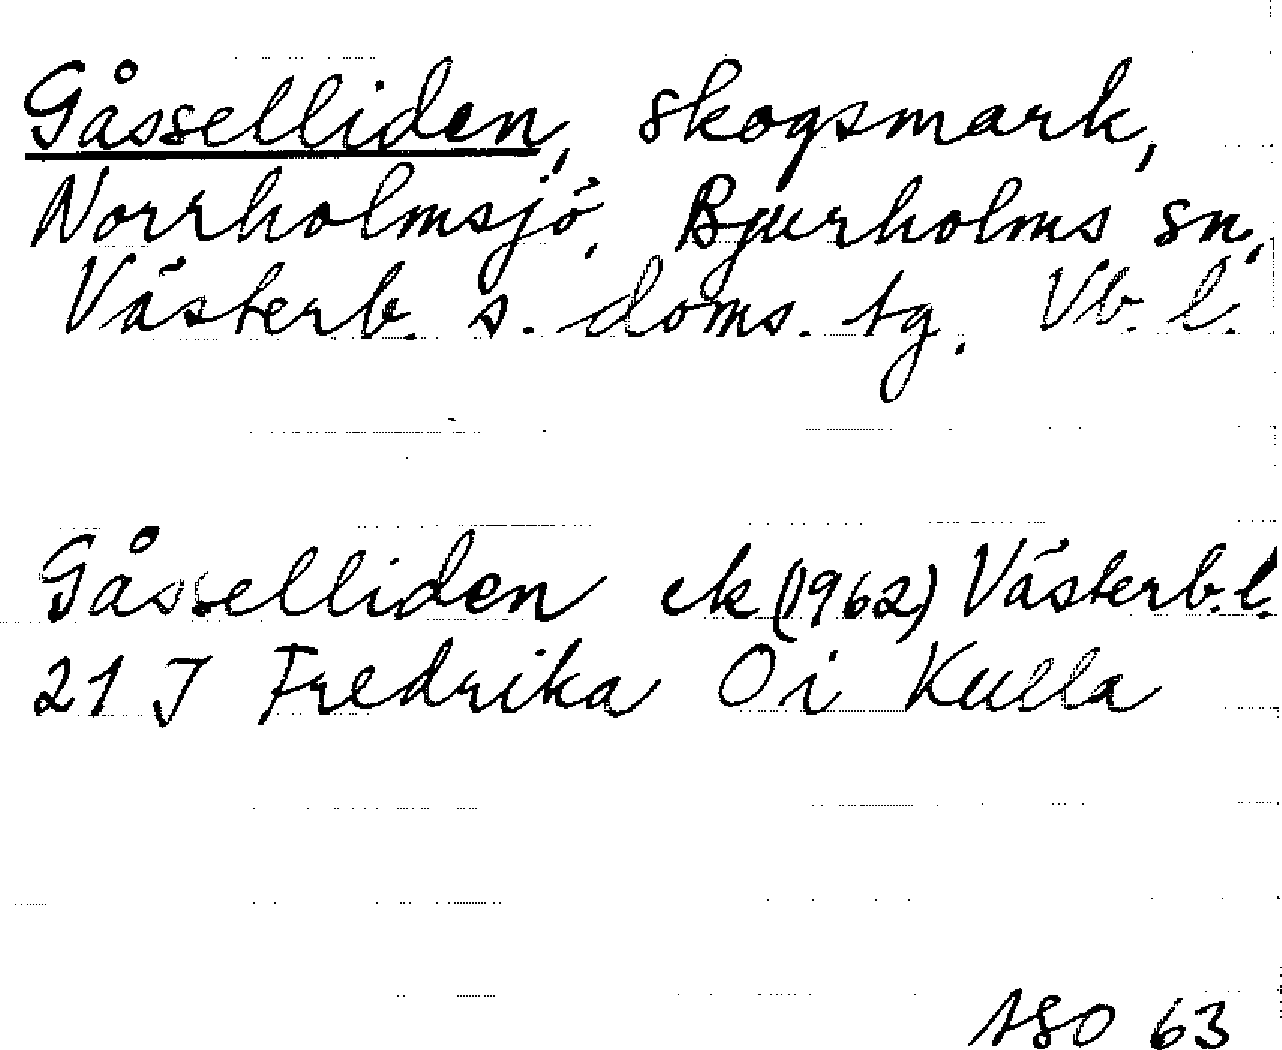 Gåsselliden, skogsmark,
Norrholmsjö, Bjurholms sn,
Västerb. s. doms. tg. Vb. l.
Gåsselliden ek (1962) Västerb. l.
21 J Fredrika Ö i Kulla
ASO 63